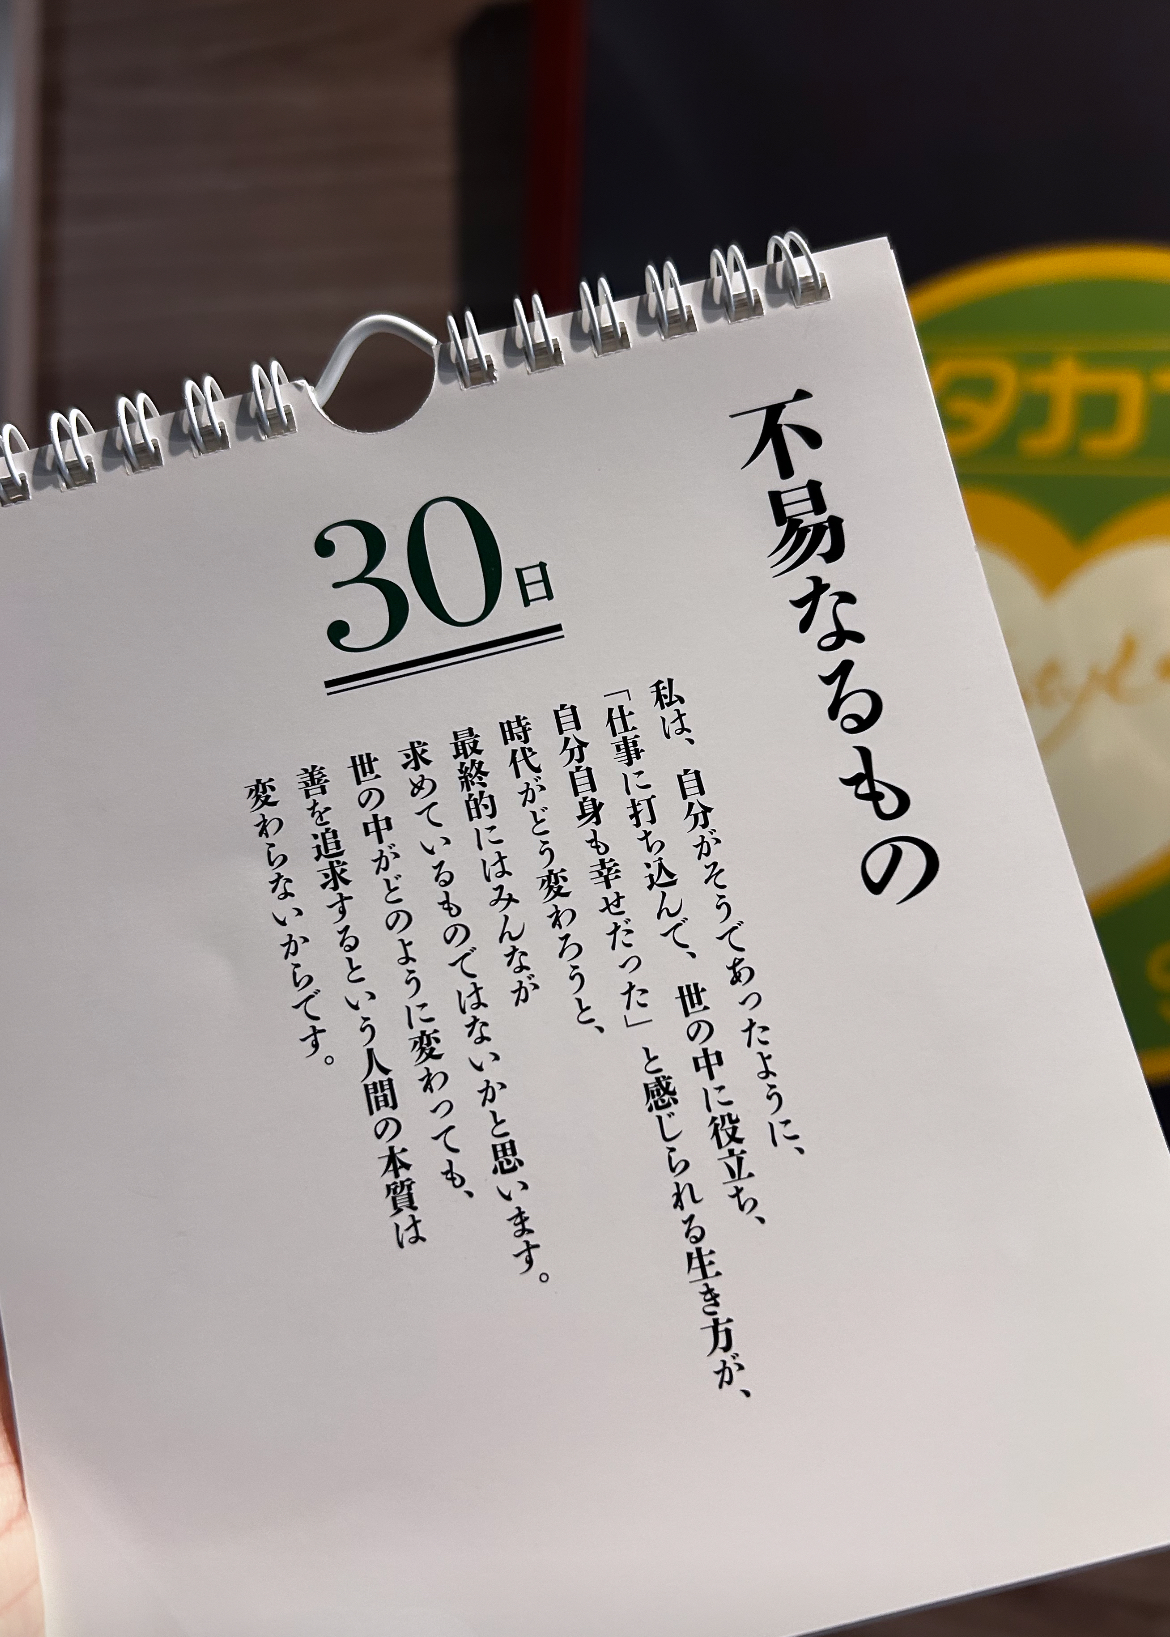 不易なるもの
30日
私は、自分がそうであったように、
「仕事に打ち込んで、世の中に役立ち、
自分自身も幸せだった」と感じられる生き方が、
時代がどう変わろうと、
最終的にはみんなが
求めているものではないかと思います。
世の中がどのように変わっても、
善を追求するという人間の本質は
変わらないからです。
タカ